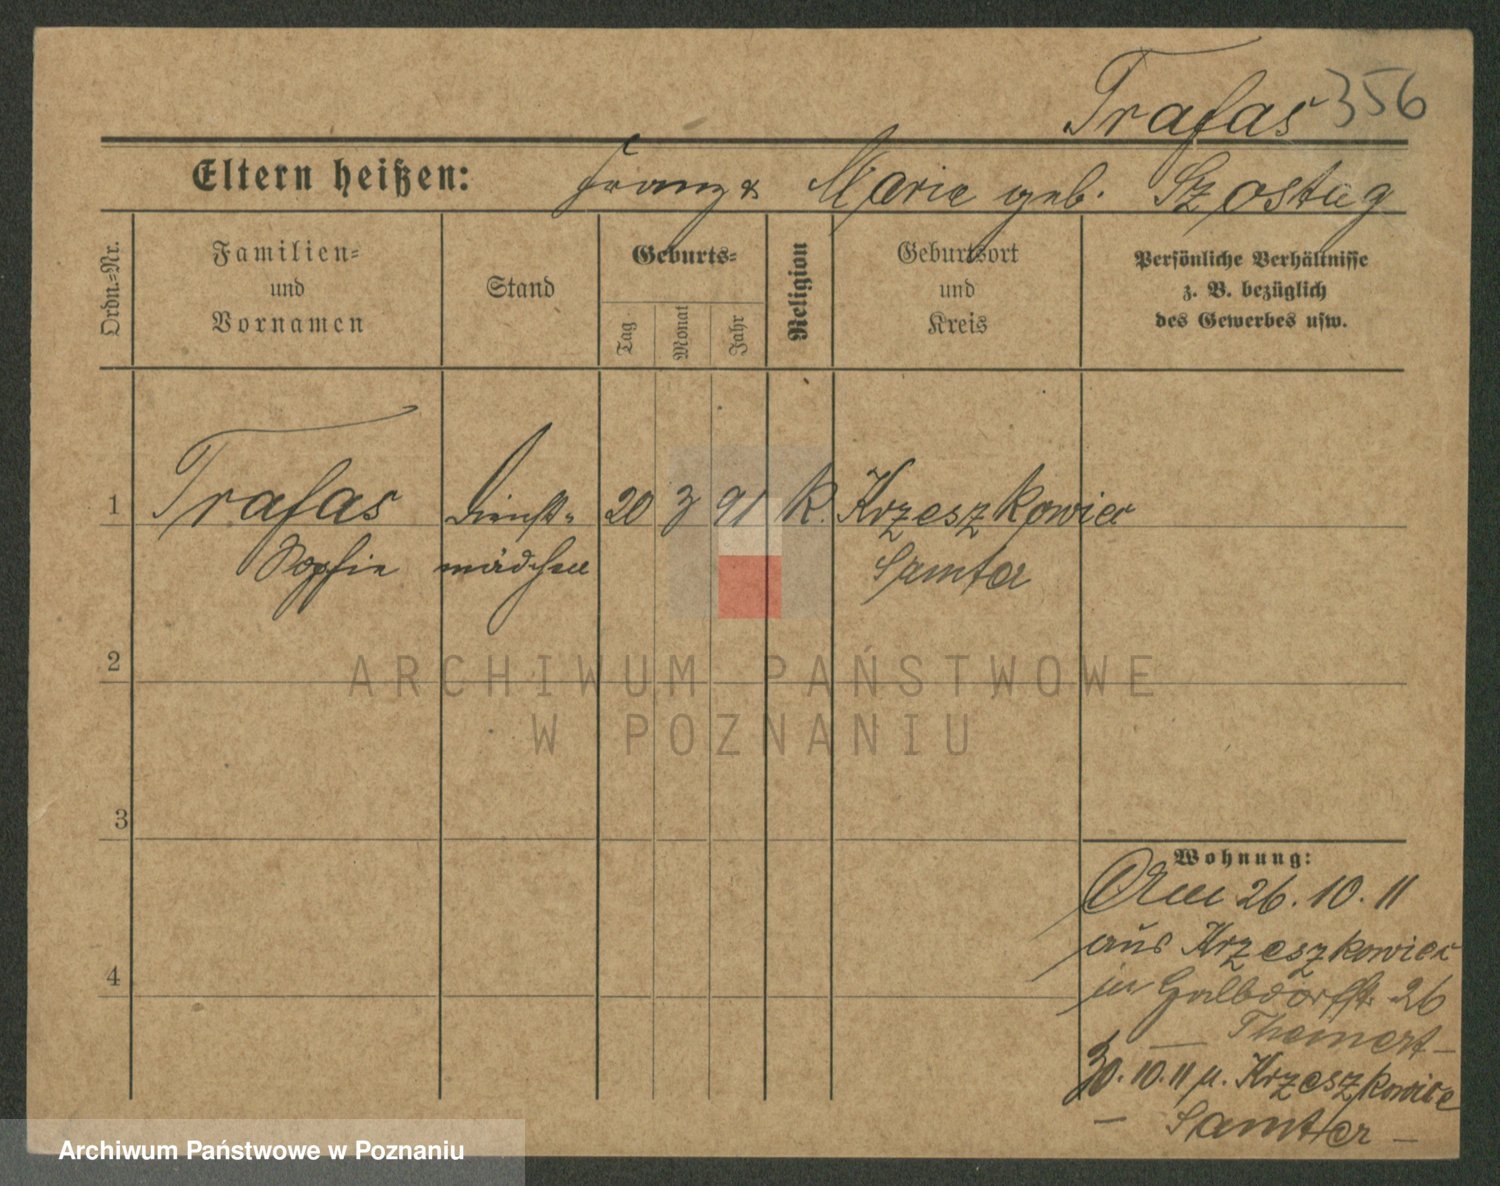 Trafas 356
Eltern heißen: Franz & Marie geb. Szostag
Ordn.=Nr.
Familien=
und
Vornamen
Stand
Geburts=
Tag
Monat
Jahr
Religion
Geburtsort
und
Kreis
Persönliche Verhältnisse
z. B. bezüglich
des Gewerbes usw.
1 Trafas Dienst= 20 3 91 K. Krzeszkowice
Sophie mädchen Samter
2
3
4
Wohnung:
Am 26. 10. 11
aus Krzeszkowice
in 26
30. 10. 11 n. Krzeszkowice
– Samter –
ARCHIWUM PAŃSTWOWE
W POZNANIU
Archiwum Państwowe w Poznaniu